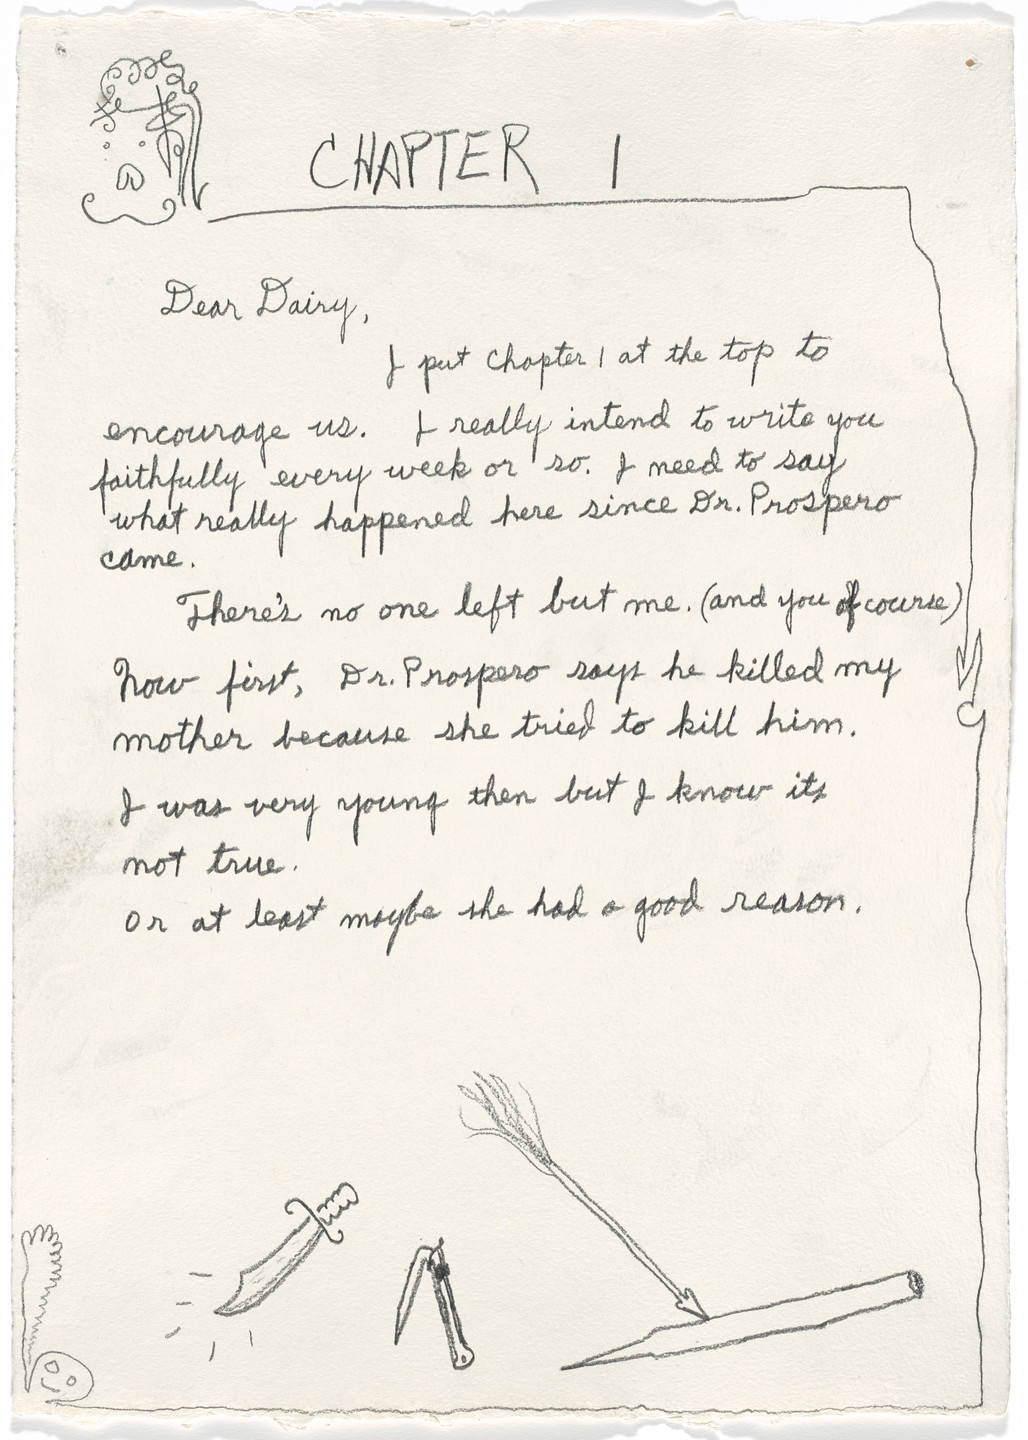 CHAPTER 1
Dear Dairy,
I put Chapter 1 at the top to
encourage us. I really intend to write you
faithfully every week or so. I need to say
what really happened here since Dr. Prospero
came.
There's no one left but me. (and you of course)
Now first, Dr. Prospero says he killed my
mother because she tried to kill him.
I was very young then but I know its
not true.
Or at least maybe she had a good reason.